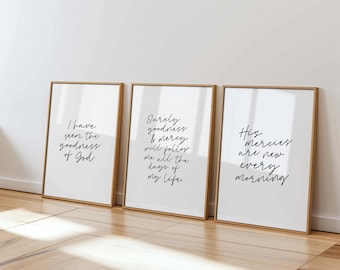 I have
seen the
goodness
of God
Surely
goodness
& mercy
will follow
me all the
days of
my life.
His
mercies
are new
every
morning